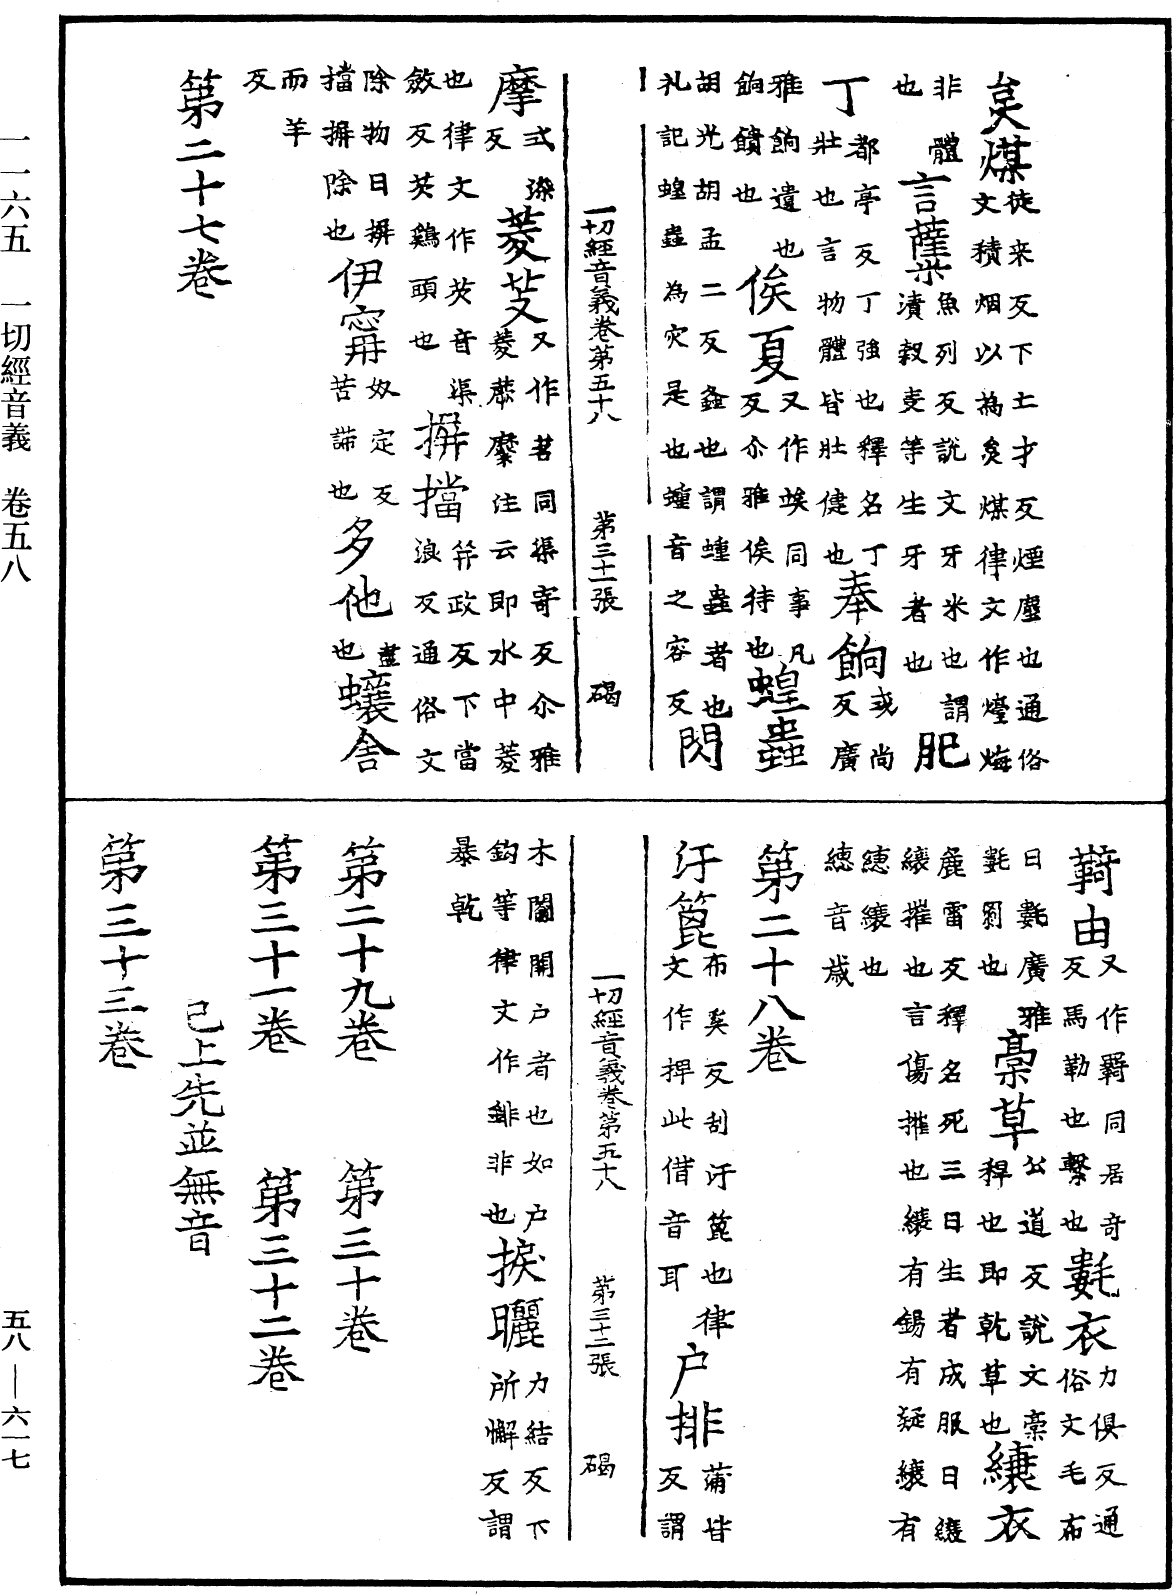 炱煤徒来反下土才反煙塵也通俗
文積烟以為炱煤律文作檯㷬
非體也言薩櫱魚列反說文牙米也謂
漬穀麦等生牙者也肥
丁都亭反丁強也釋名丁
壯也言物體皆壯健也奉餉式尚反廣
雅餉遺也
餉饋也俟夏又作竢同事几
反尒雅俟待也蝗蟲
胡光胡孟二反螽也謂蝩蟲者也
礼記蝗蟲為灾是也蝩音之容反閃
一切經音義卷第五十八 第三十一張 碣
摩式染反菱芰又作茤同渠寄反尒雅
菱蕨攈注云即水中菱
也律文作茭音渠
斂反茭鷄頭也摒擋笄政反下當
浪反通俗文
除物曰摒
擋摒除也伊寗奴定反
苦諦也多他盡
也蠰舍
而羊
反
第二十七卷
鞿由又作羇同居奇
反馬勒也繫也氀衣力俱反通
俗文毛布
曰氀廣雅
氀罽也稾草公道反說文稾
稈也即乾草也縗衣
麁雷反釋名死三日生者成服曰縗
縗摧也言傷摧也縗有錫有疑縗有
繐縗也
繐音歲
第二十八卷
汙篦布奚反刮汙篦也律
文作捭此借音耳户排蒲皆
反謂
一切經音義卷第五十八 第三十二張 碣
木闔關户者也如户
鈎等律文作䤵非也捩曬力結反下
所懈反謂
暴乾
第二十九卷 第三十卷
第三十一卷 第三十二卷
已上先並無音
第三十三卷
一一六五 一切經音義 卷五八
五八—六一七